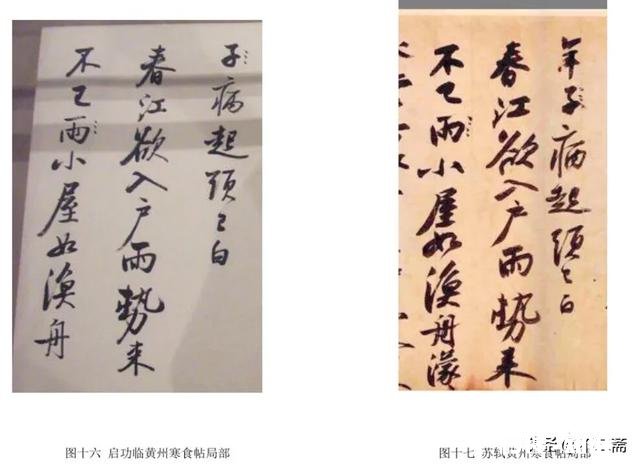 子病起頭已白
春江欲入户雨勢来
不已雨小屋如漁舟
年子病起頭已白
春江欲入户雨勢来
不已雨小屋如漁舟濛
图十六 启功临黄州寒食帖局部
图十七 苏轼黄州寒食帖局部